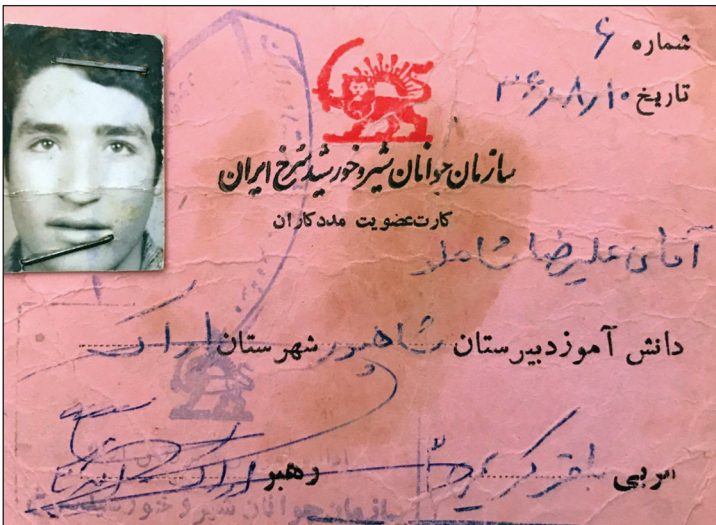 شماره ۶
تاریخ ۳۶/۸/۱۰
سازمان جوانان شیر و خورشید سرخ ایران
کارت عضویت مددکاران
آقای علیرضا
دانش آموز دبیرستان شاهپور شهرستان اراک
مربی باقر رهبر
سازمان جوانان شیر و خورشید